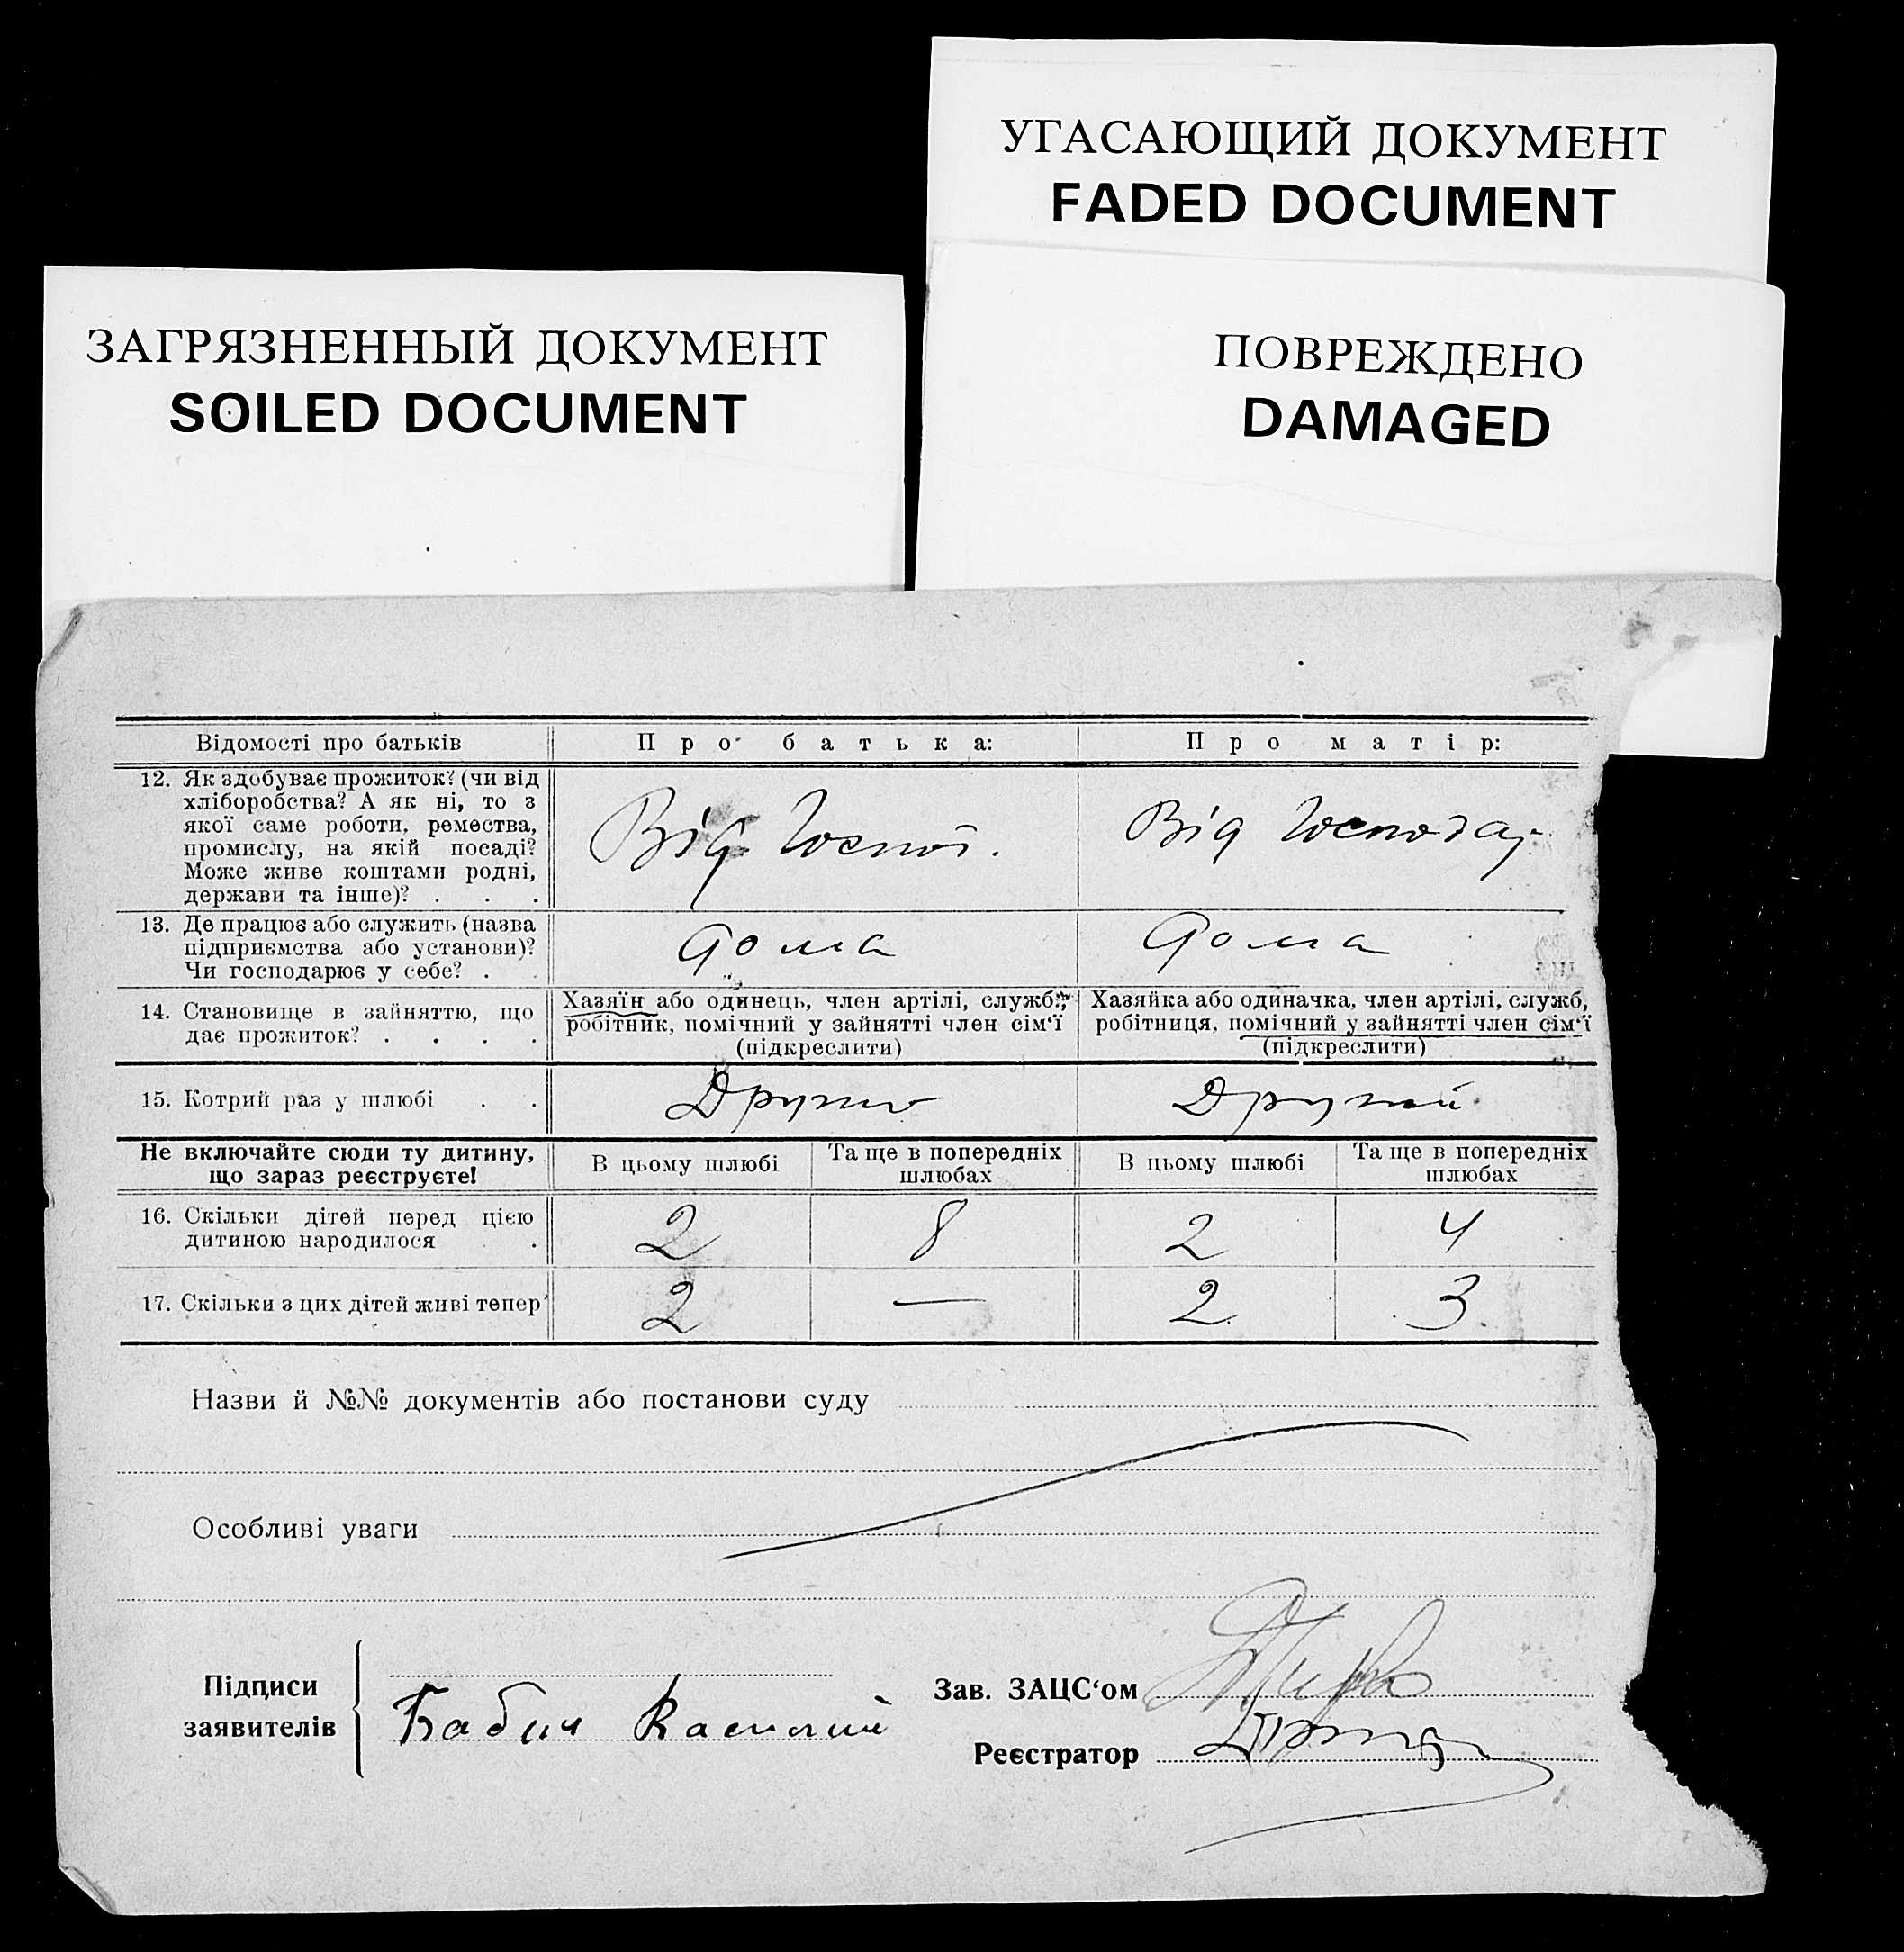 УГАСАЮЩИЙ ДОКУМЕНТ
FADED DOCUMENT
ЗАГРЯЗНЕННЫЙ ДОКУМЕНТ
SOILED DOCUMENT
ПОВРЕЖДЕНО
DAMAGED
Відомості про батьків
Про батька:
Про матір:
12. Як здобуває прожиток? (чи від
хліборобства? А як ні, то з
якої саме роботи, ремества,
промислу, на якій посаді?
Може живе коштами родні,
держави та інше)? . . .
Від
Від господар
13. Де працює або служить (назва
підприємства або установи)?
Чи господарює у себе? . .
дома
дома
14. Становище в зайняттю, що
дає прожиток? . . . .
Хазяїн або одинець, член артілі, служб, робітник, помічний у зайнятті член сім‘ї
(підкреслити)
Хазяйка або одиначка, член артілі, служб,
робітниця, помічний у зайнятті член сім‘ї
(підкреслити)
15. Котрий раз у шлюбі . .
Другий
Не включайте сюди ту дитину,
що зараз реєструєте!
В цьому шлюбі
Та ще в попередніх
шлюбах
В цьому шлюбі
Та ще в попередніх
шлюбах
16. Скільки дітей перед цією
дитиною народилося .
2
8
2
4
17. Скільки з цих дітей живі тепер
2
—
2
3
Назви й №№ документів або постанови суду
Особливі уваги
Підписи
заявителів
Бабич Василий
Зав. ЗАЦС‘ом
Реєстратор